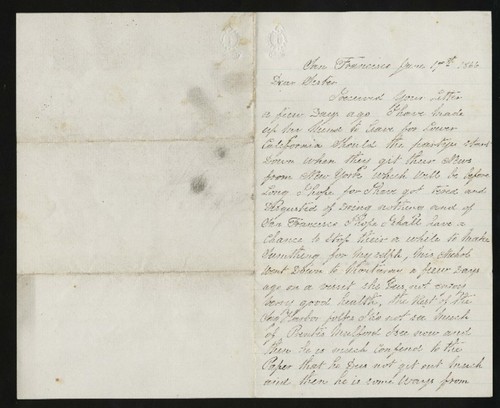 San Francisco June 1866
Dear Sister
I received your letter
a fiew Days ago I have made
up my mind to leave for Lower
California should the partys start
Down when they git their News
from New York which will be before
Long I hope for I have got tired and
Disgusted of Doing nothing and of
San Francisco I hope I shall have a
chance to stop their a while to make
sumthing for my selph, Mrs Nichols
went Down to a fiew Days
ago on a viset she Dus not enjoy
very good health, the Rest of the
Sag Harbor folks I Do not see much
of Prentis Mulford I see now and
then he is much confend to the
Paper that he Dus not get out much
and then he is some ways from